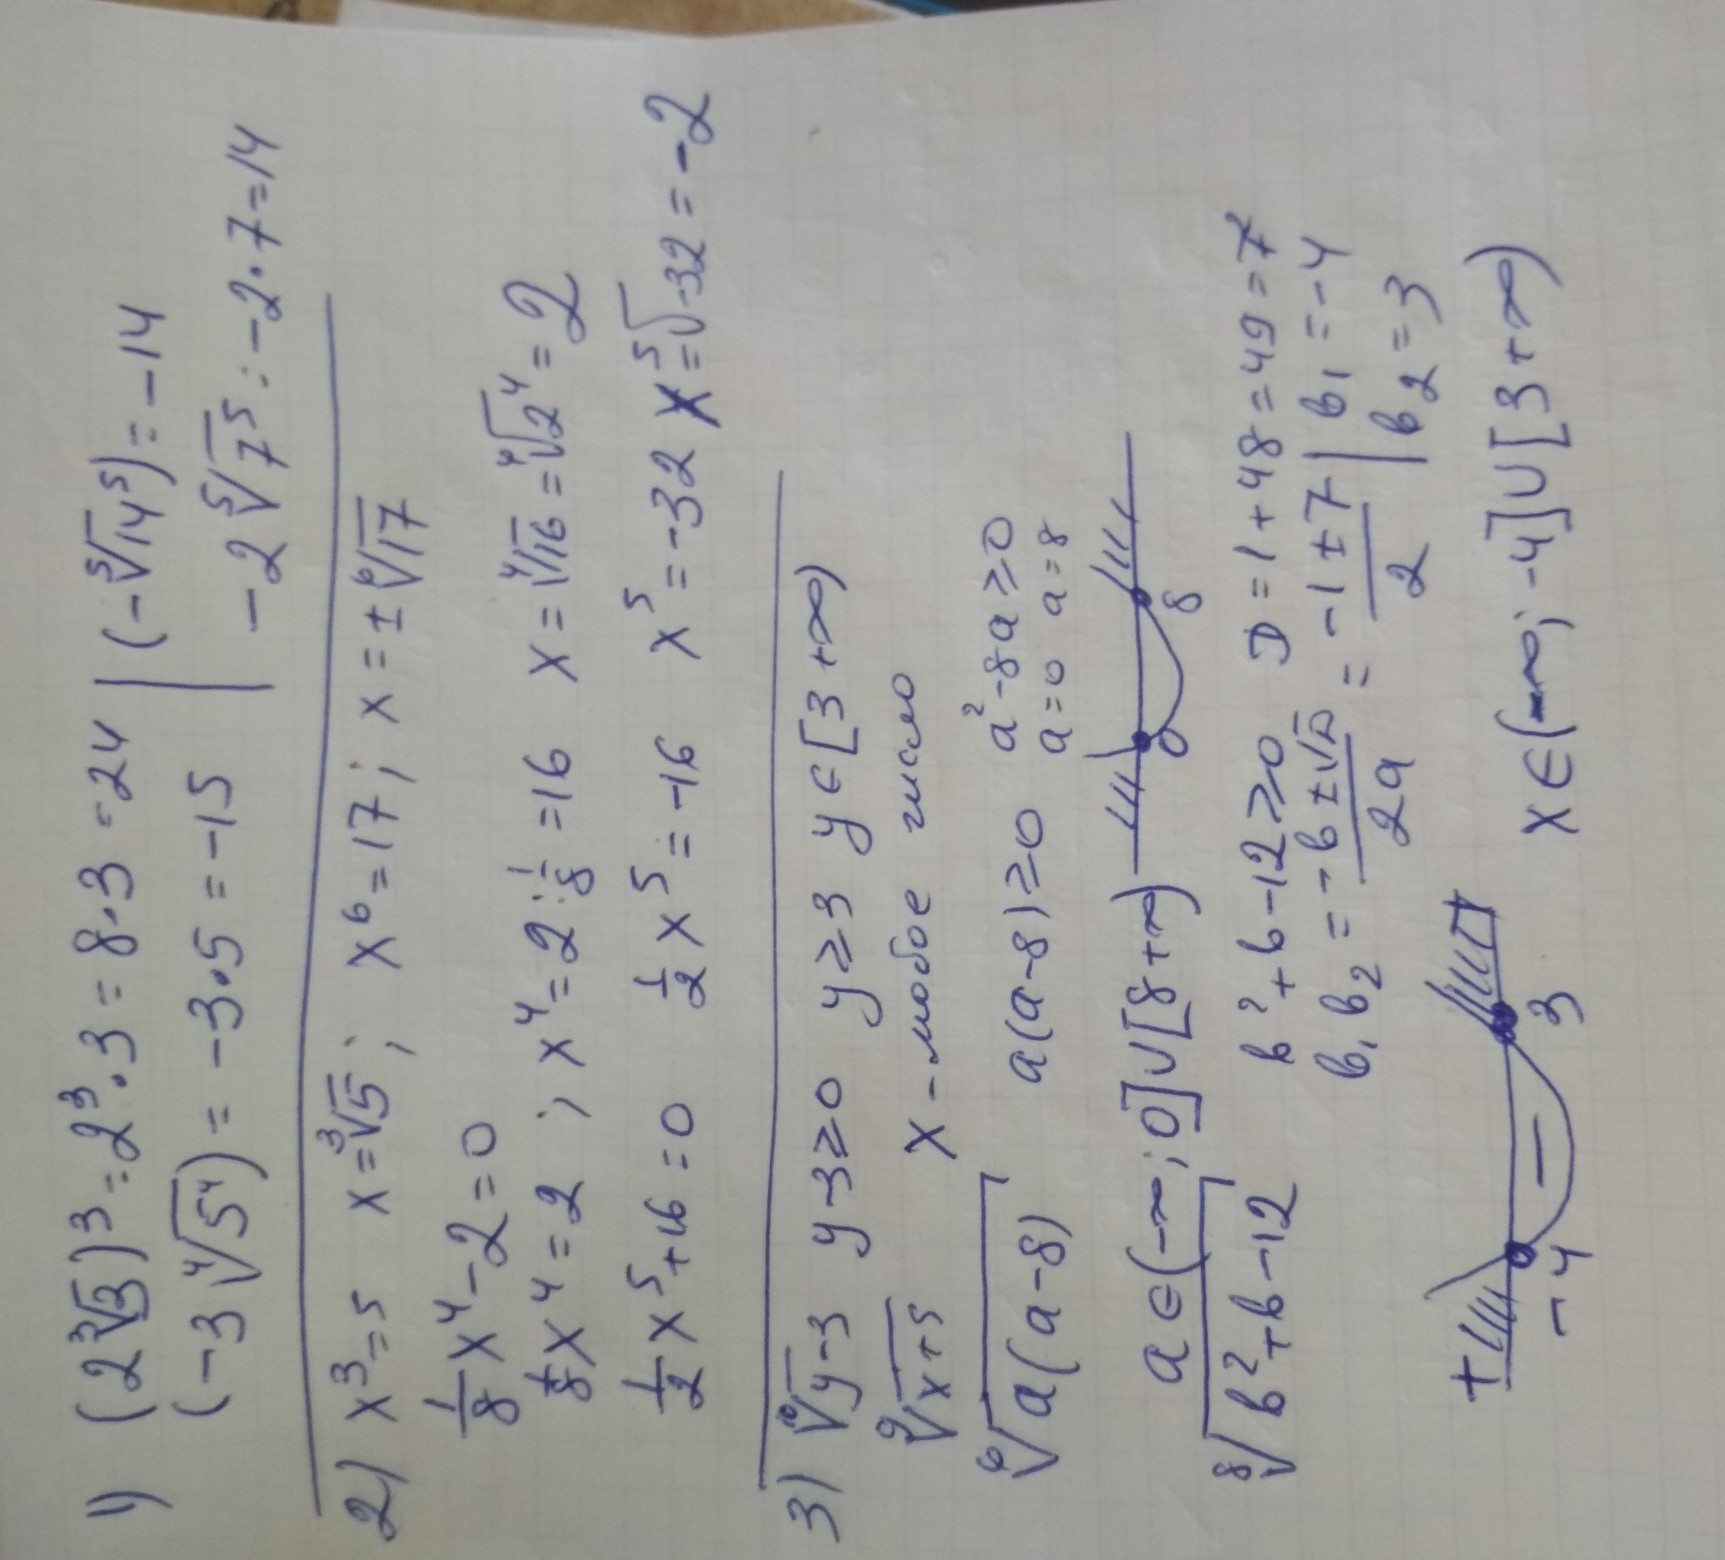 1) (2∛3)³ = 2³·3 = 8·3 = 24 | (-⁵√14⁵) = -14
(-3⁴√5⁴) = -3·5 = -15 | -2⁵√7⁵ : -2·7=14
2) x³=5 x=∛5; x⁶=17; x=±⁶√17
1/8 x⁴-2=0
1/8 x⁴=2; x⁴=2:1/8=16 x=⁴√16=⁴√2⁴=2
1/2 x⁵+16=0 1/2 x⁵=-16 x⁵=-32 x=⁵√-32=-2
3) ¹⁰√y-3 y-3≥0 y≥3 y∈[3+∞)
⁹√x+5 x-любое число
⁶√a(a-8) a(a-8)≥0 a²-8a≥0
a=0 a=8
a∈(-∞;0]∪[8+∞) 0 8
⁸√b²+b-12 b²+b-12≥0 D=1+48=49=7
b₁b₂=-b±√D/2a = -1±7/2 | b₁=-4
b₂=3
+ -4 − 3 x∈(-∞;-4]∪[3+∞)